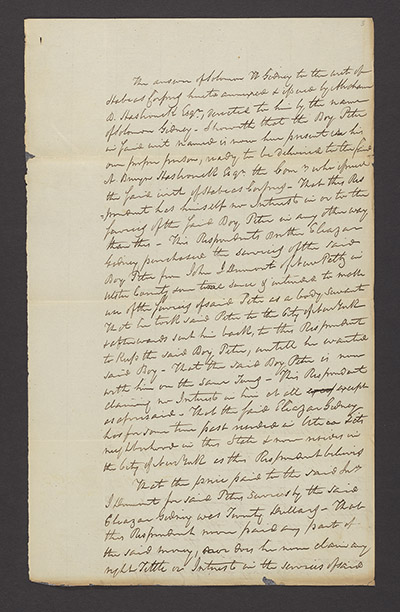 The answer of Solomon W Gedney to the writ of
Habeas Corpus hereto annexed & issued by Abraham
B. Hasbrouck Esqr, directed to him by the name
of Solomon Gedney - Sheweth that the Boy Peter
in said writ named is now here present in his
own proper person, ready to be delivered to the said
A Bruyn Hasbrouck Esqr the Comr who issued
the said writ of Habeas Corpus - That this Res
pondent has himself no Interest in or to the
services of the said Boy Peter in any other way
than this - This Respondents Brother Eleazar
Gedney purchased the services of the said
Boy Peter from John I Dumont of New Paltz in
Ulster County some time since & intended to make
use of the services of said Peter as a body servant
That he took said Peter to the City of New York
& afterwards sent him back, to this Respondent
to keep the said Boy, Peter, untill he wanted
said Boy - That the said Boy Peter is now
with him on the same Terms - This Respondent
claiming no Interest in him at all except
as aforesaid - That the said Eleazar Gedney
has for some time past resided in
neighborhood in this State & now resides in
the City of New York as this Respondent believes
That the price paid to the said Jno
I Dumont for said Peters Services by the said
Eleazar Gedney was Twenty Dollars - That
this Respondent never paid any part of
the said money, nor does he now claim any
right Tittle or Interest in the services of said